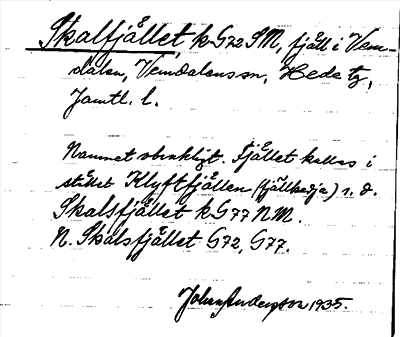 Skalfjället, k G72 SM, fjäll i Vem-
dalen, Vemdalens sn, Hede tg,
Jämtl. l.
Namnet obrukligt. Fjället kallas i
stället Klyftfjällen (fjällkedja) s. d.
Skalsfjället k G77 NM.
N. Skalsfjället G72, G77.
Johan Anderson 1935.